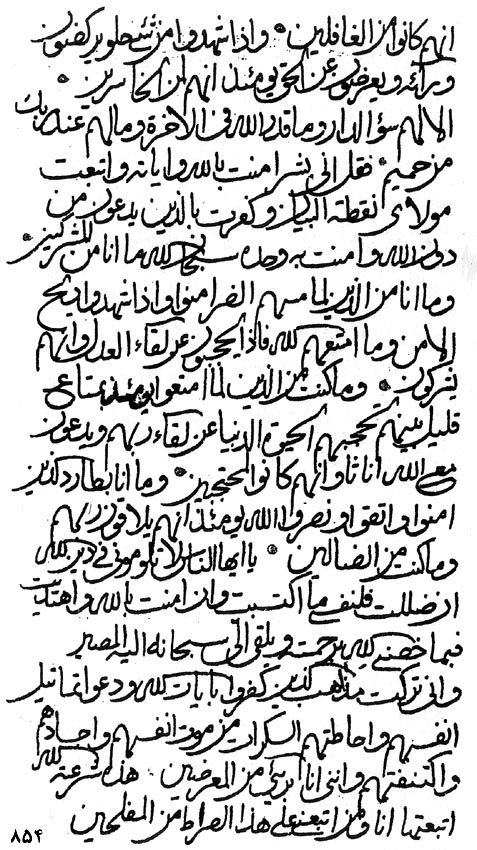 انهم كانوا من الغافلين * واذا شهدوا من شئ حلو يركضون
ورائه ويعرضون عن الحق يومئذ انهم لمن الخاسرين *
الا لهم سؤ الدار وما قدر الله فى الاخرة وما لهم عند ربك
من حميم * فقل انى بشر امنت بالله واياته واتبعت
مولاى نقطة البيان وكفرت بالذين يدعون من
دون الله وامنت به وحده سبحان الله ما انا من المشركين *
وما انا من الذين لما مسهم الضر امنوا واذا شهدوا ريح
الامن وما امتعهم الله فاذا يحتجبون عن لقاء العدل وانهم
يشركون * وما كنت من الذين لما امتعوا يومئذ بمتاع
قليل بينهم تحجبهم الحيوة الدنيا عن لقاء ربهم ويدعون
مع الله اناثا وانهم كانوا لمحتجبين * وما انا بطارد الذين
امنوا واتقوا ونصروا الله يومئذ انهم يلاقون ربهم
وما كنت من الضالين * يا ايها الناس لا تلومونى فى دين الله
ان ضللت فلنفسى ما اكتسبت وان امنت بالله واهتديت
فبما خصنى الله برحمته ويلقى الىّ سبحانه اليه المصير
وانى تركت مذاهب الذين كفروا بايات الله ودعوا تماثيل
انفسهم واحاطتهم السكرات من موت انفسهم واجسادهم
واكتنفتهم واننى انا برئ من المعرضين . هذه شرعة الله
اتبعتها انا ومن اتبعنى على هذا الصراط من المفلحين
۸۵۴